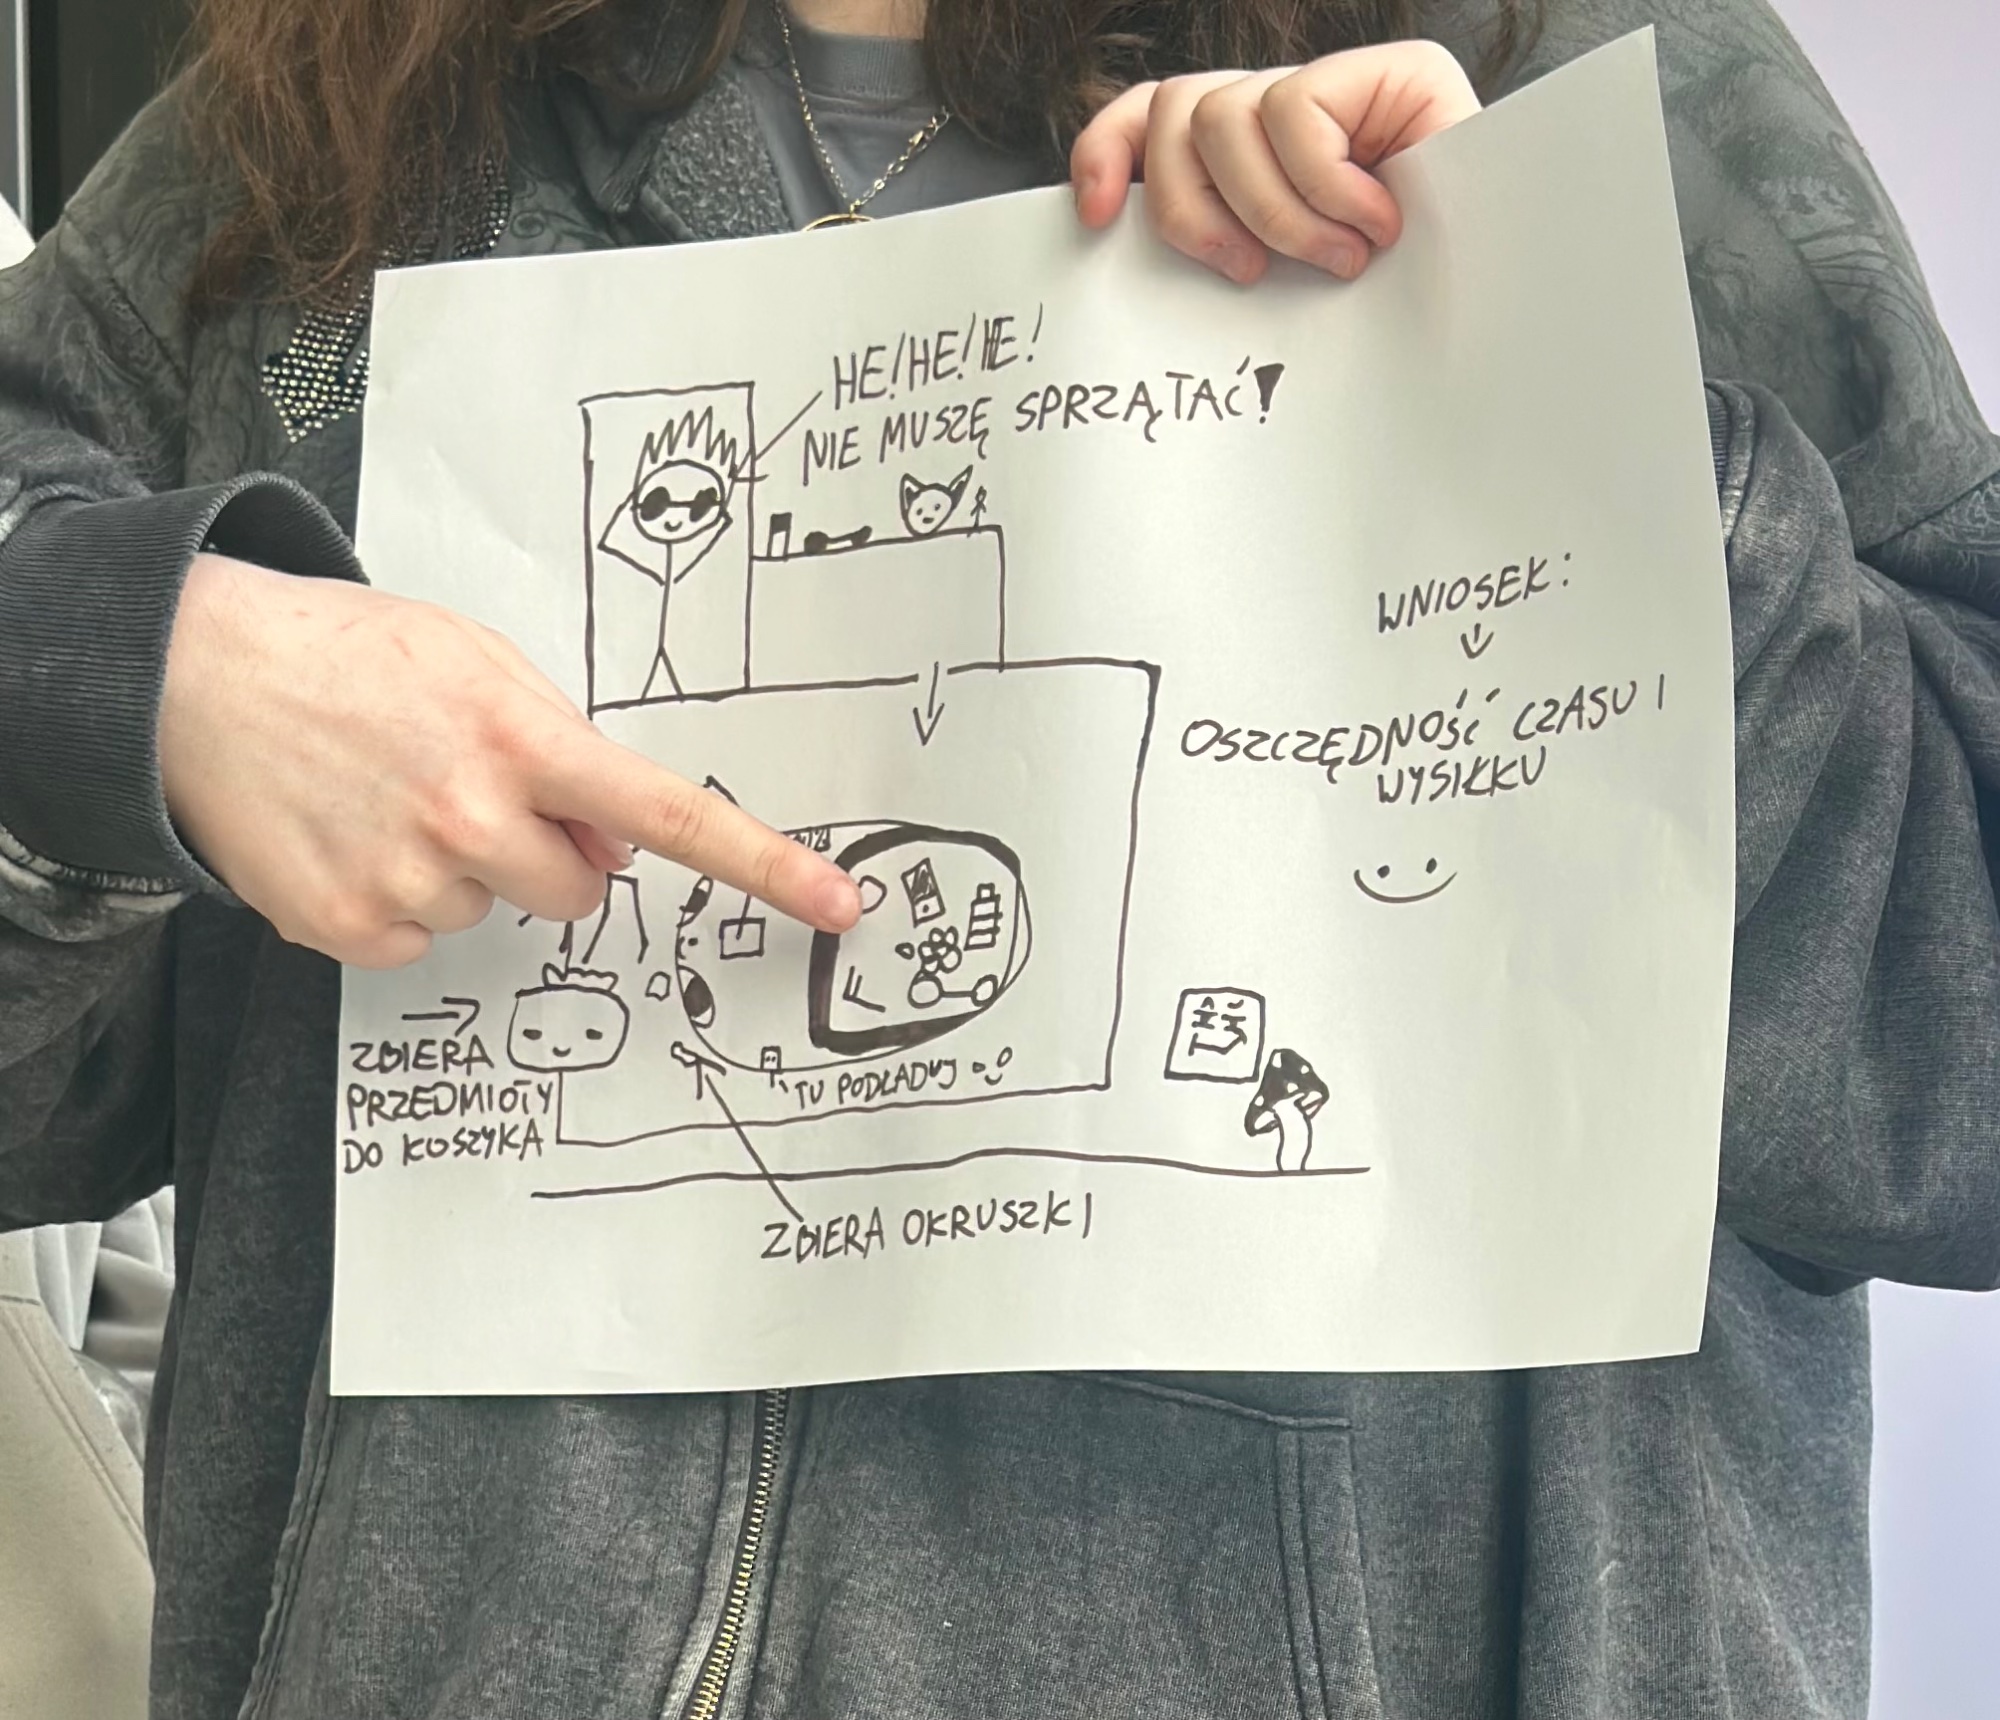 HE! HE! HE!
NIE MUSZĘ SPRZĄTAĆ!
WNIOSEK:
OSZCZĘDNOŚĆ CZASU I
WYSIŁKU
ZBIERA
PRZEDMIOTY
DO KOSZYKA
TU PODŁADUJ
ZBIERA OKRUSZKI